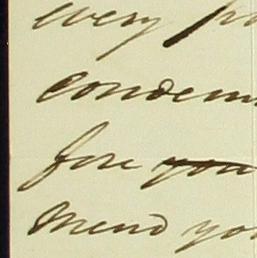 every
condem
fore you
mend yo